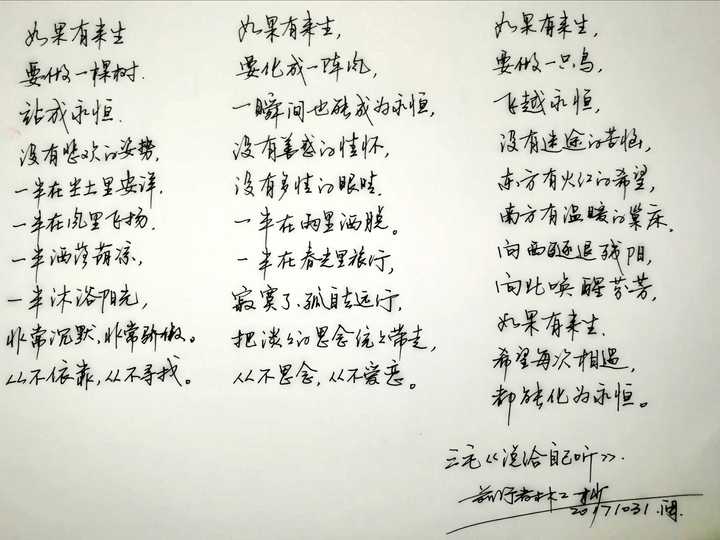 如果有来生
要做一棵树.
站成永恒.
没有悲欢的姿势,
一半在尘土里安详.
一半在风里飞扬.
一半洒落荫凉,
一半沐浴阳光,
非常沉默,非常骄傲。
从不依靠,从不寻找。
如果有来生,
要化成一阵风,
一瞬间也能成为永恒,
没有善感的情怀,
没有多情的眼睛.
一半在雨里洒脱。
一半在春光里旅行,
寂寞了.孤自去远行,
把淡淡的思念统统带走,
从不思念,从不爱恋。
如果有来生,
要做一只鸟,
飞越永恒,
没有迷途的苦恼,
东方有火红的希望,
南方有温暖的巢床,
向西逐退残阳,
向北唤醒芬芳,
如果有来生.
希望每次相遇,
都能化为永恒。
三毛《说给自己听》.
20171031.